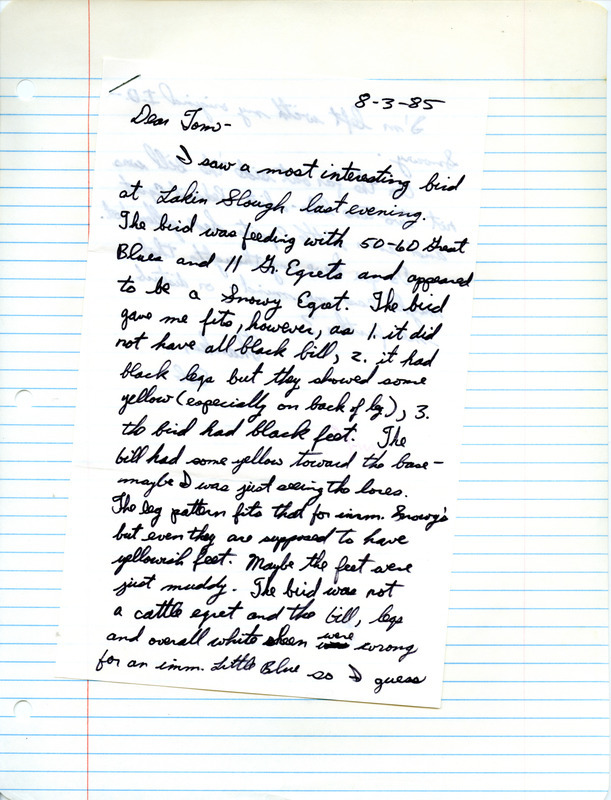 8-3-85
Dear Tom-
I saw a most interesting bird
at Lakin Slough last evening.
The bird was feeding with 50-60 Great
Blues and 11 Gr. Egrets and appeared
to be a Snowy Egret. The bird
gave me fits, however, as 1. it did
not have all black bill, 2. it had
black legs but they showed some
yellow (especially on back of leg), 3.
the bird had black feet. The
bill had some yellow toward the base-
maybe I was just seeing the lores.
The leg pattern fits that for imm. Snowy's
but even they are supposed to have
yellowish feet. Maybe the feet were
just muddy. The bird was not
a cattle egret and the bill, legs
and overall white sheen were wrong
for an imm. Little Blue so I guess